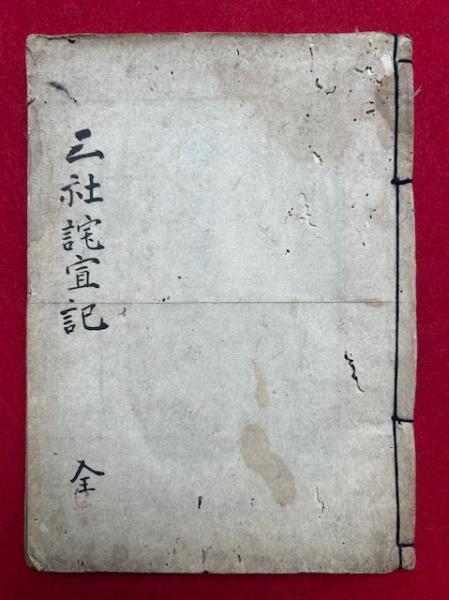 三社詫宣記
全